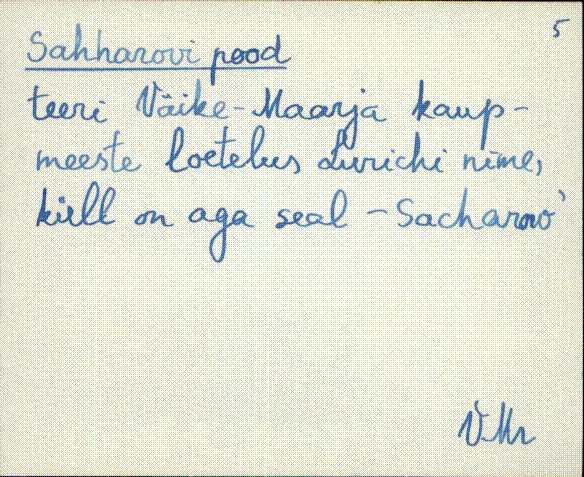 5
Sahharovi pood
teeri Väike-Maarja kaup-
meeste loetelus Lurichi nime,
kirll on aga seal - Sacharow'
V.Mr